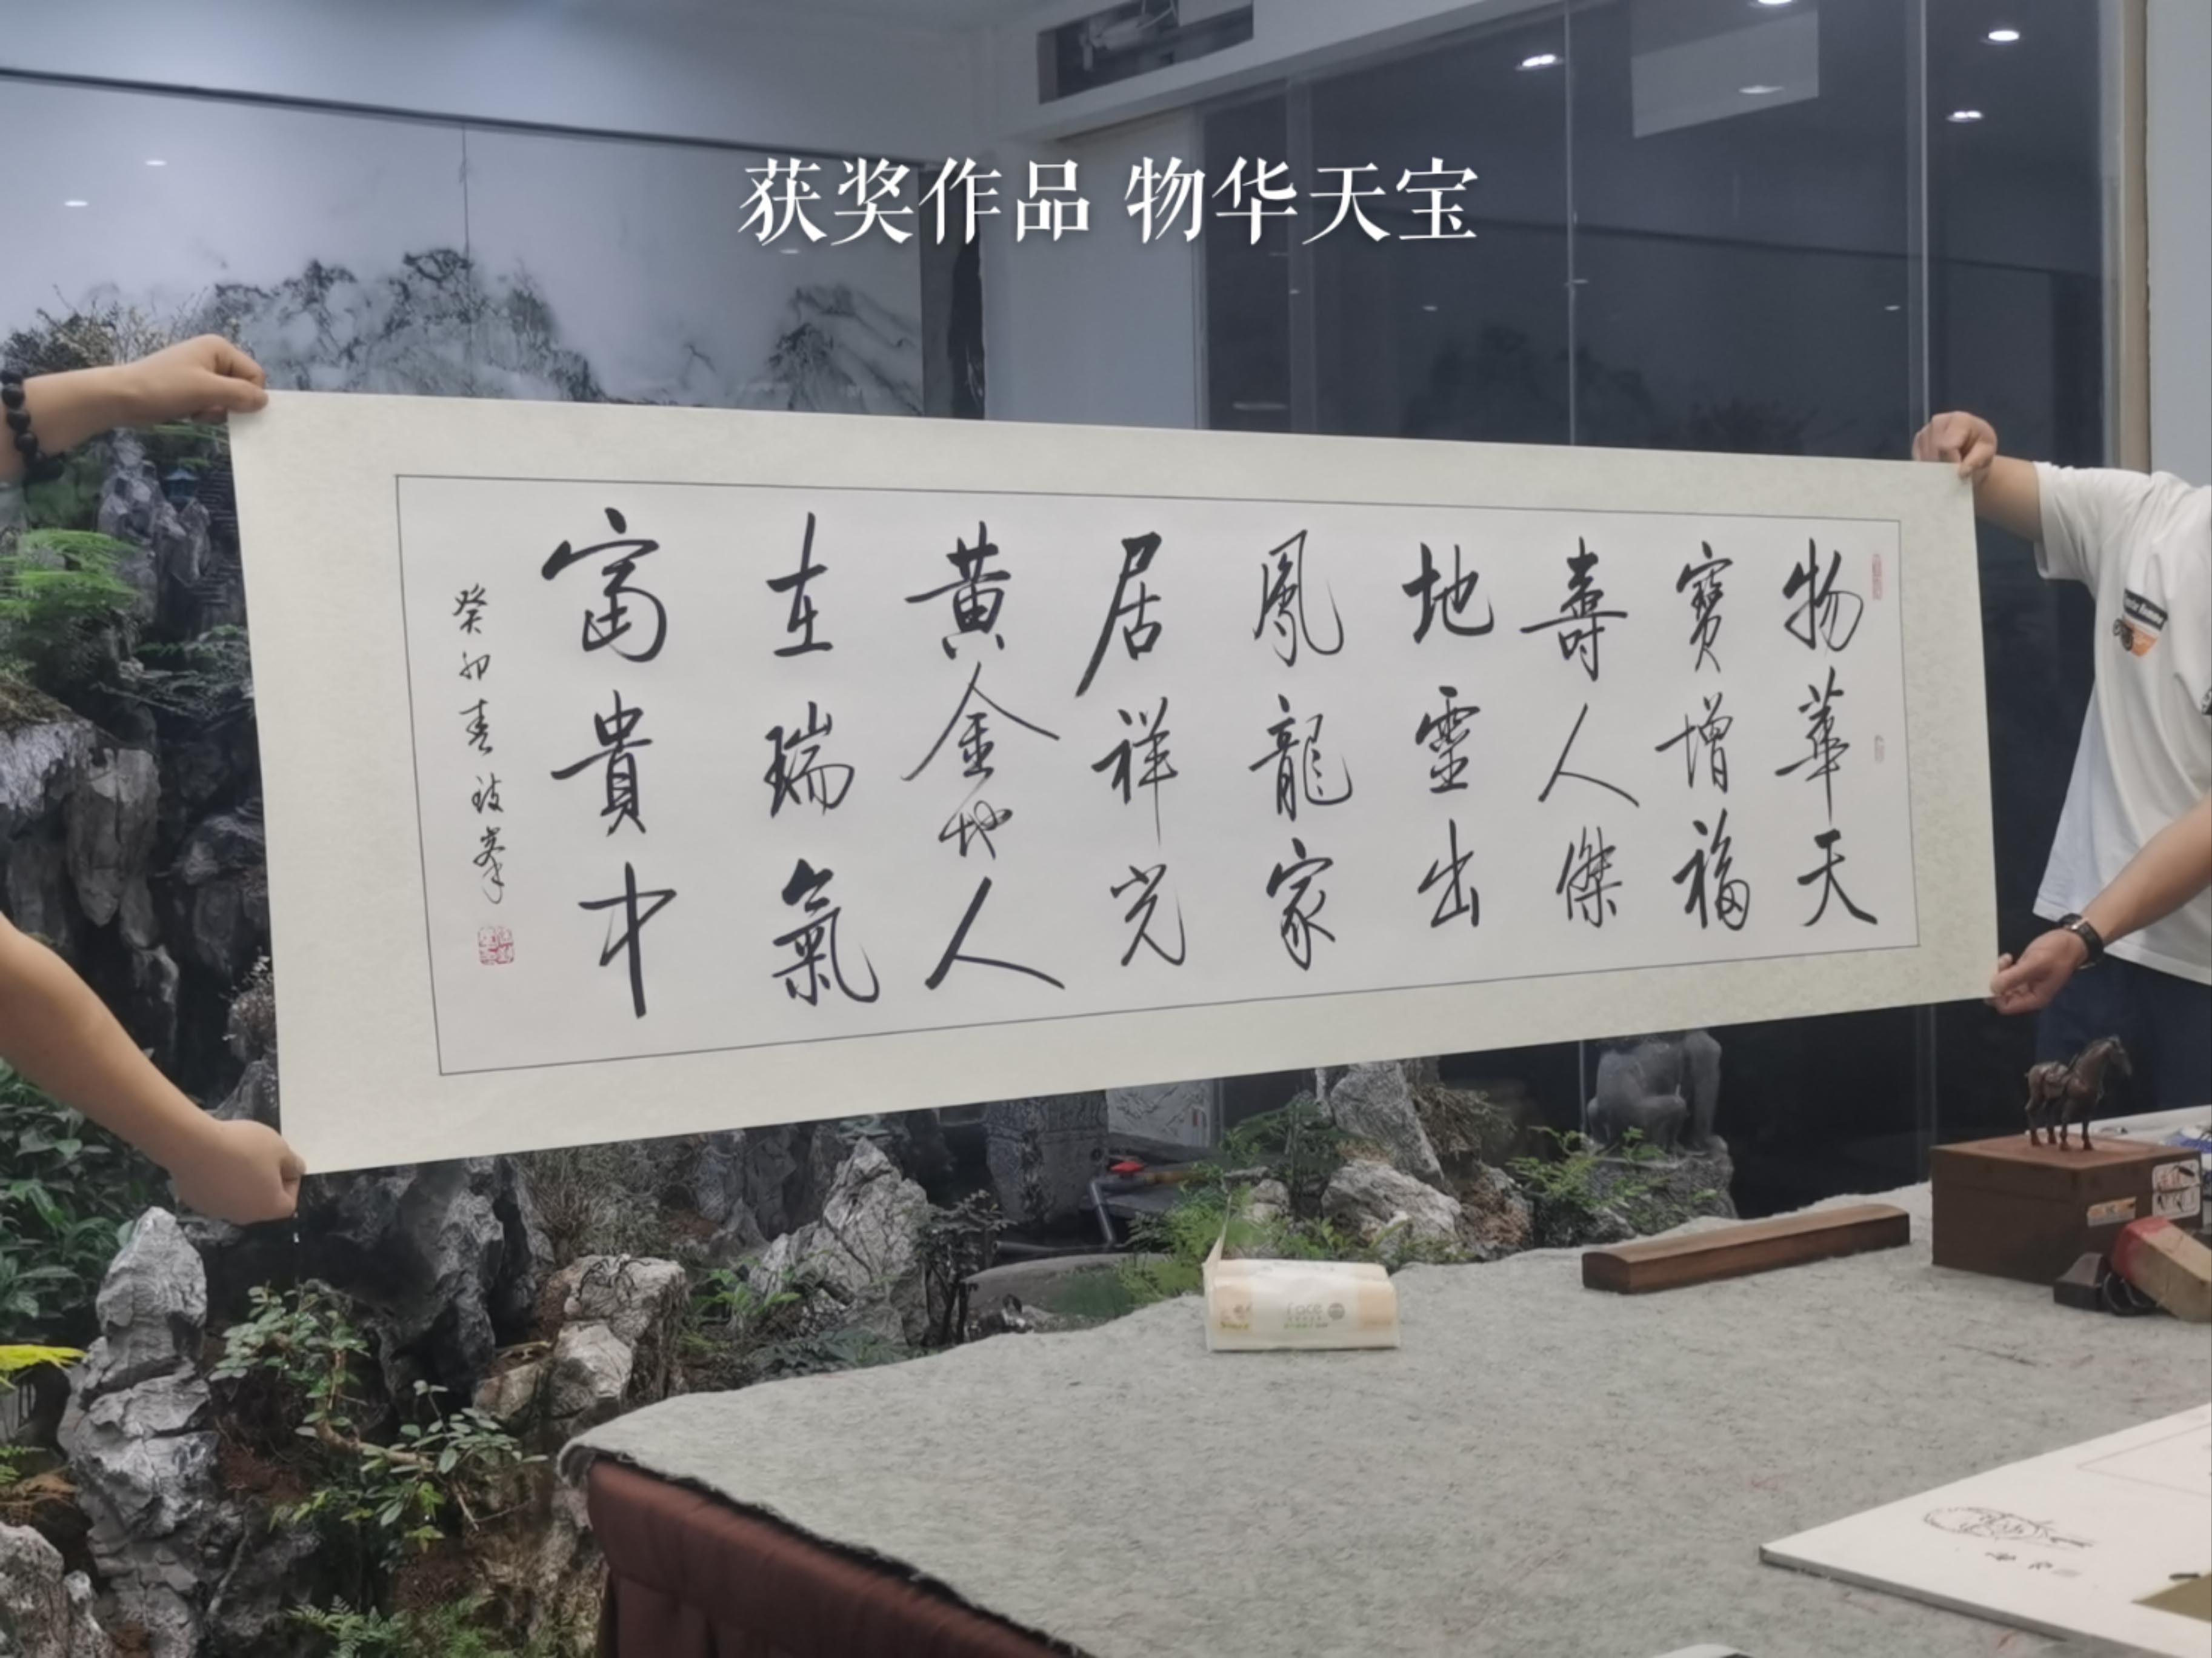 获奖作品 物华天宝
物華天
寶增福
壽人傑
地靈出
鳳龍家
居祥光
黃金地人
在瑞氣
富貴中
癸卯春